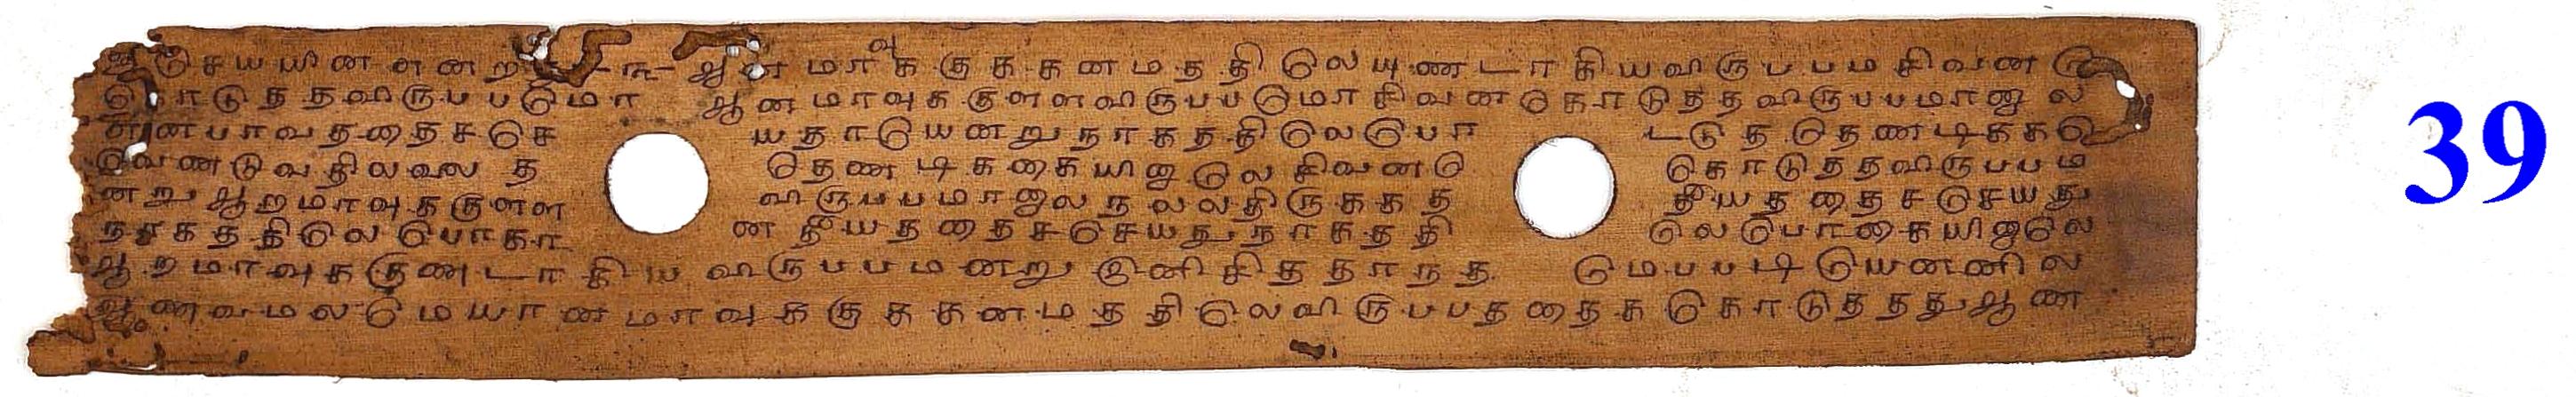 செயயினளனற ஆனமாவுககுககனமததிலெயுணடாகியவிருபபமசிவன
கொடுததவிருபபமொ ஆனமாவுககுளளவிருபபமொ சிவனகொடுததவிருபபமானால
பாவததைசசெ யதாயெனறுநரகததிலெபொ டடுத தெணடிகக
வெணடுவதிலலை த தெணடிககையினாலெ சிவன கொடுததவிருபபம
னறு ஆறமாவுககுளள விருபபமானால நலலதிருகக த தீயததைசசெயது
நரகததிலெ பொகா ன தீயததைசசெயதுநரகததி லெபொகையினாலெ
ஆறமாவுககுணடாகிய விருபபமனறு இனிசிததாநத மெபபடியெனனில
ஆணவமலமெயானமாவுககுககனமததிலெவிருபபததைககொடுததது ஆண
39